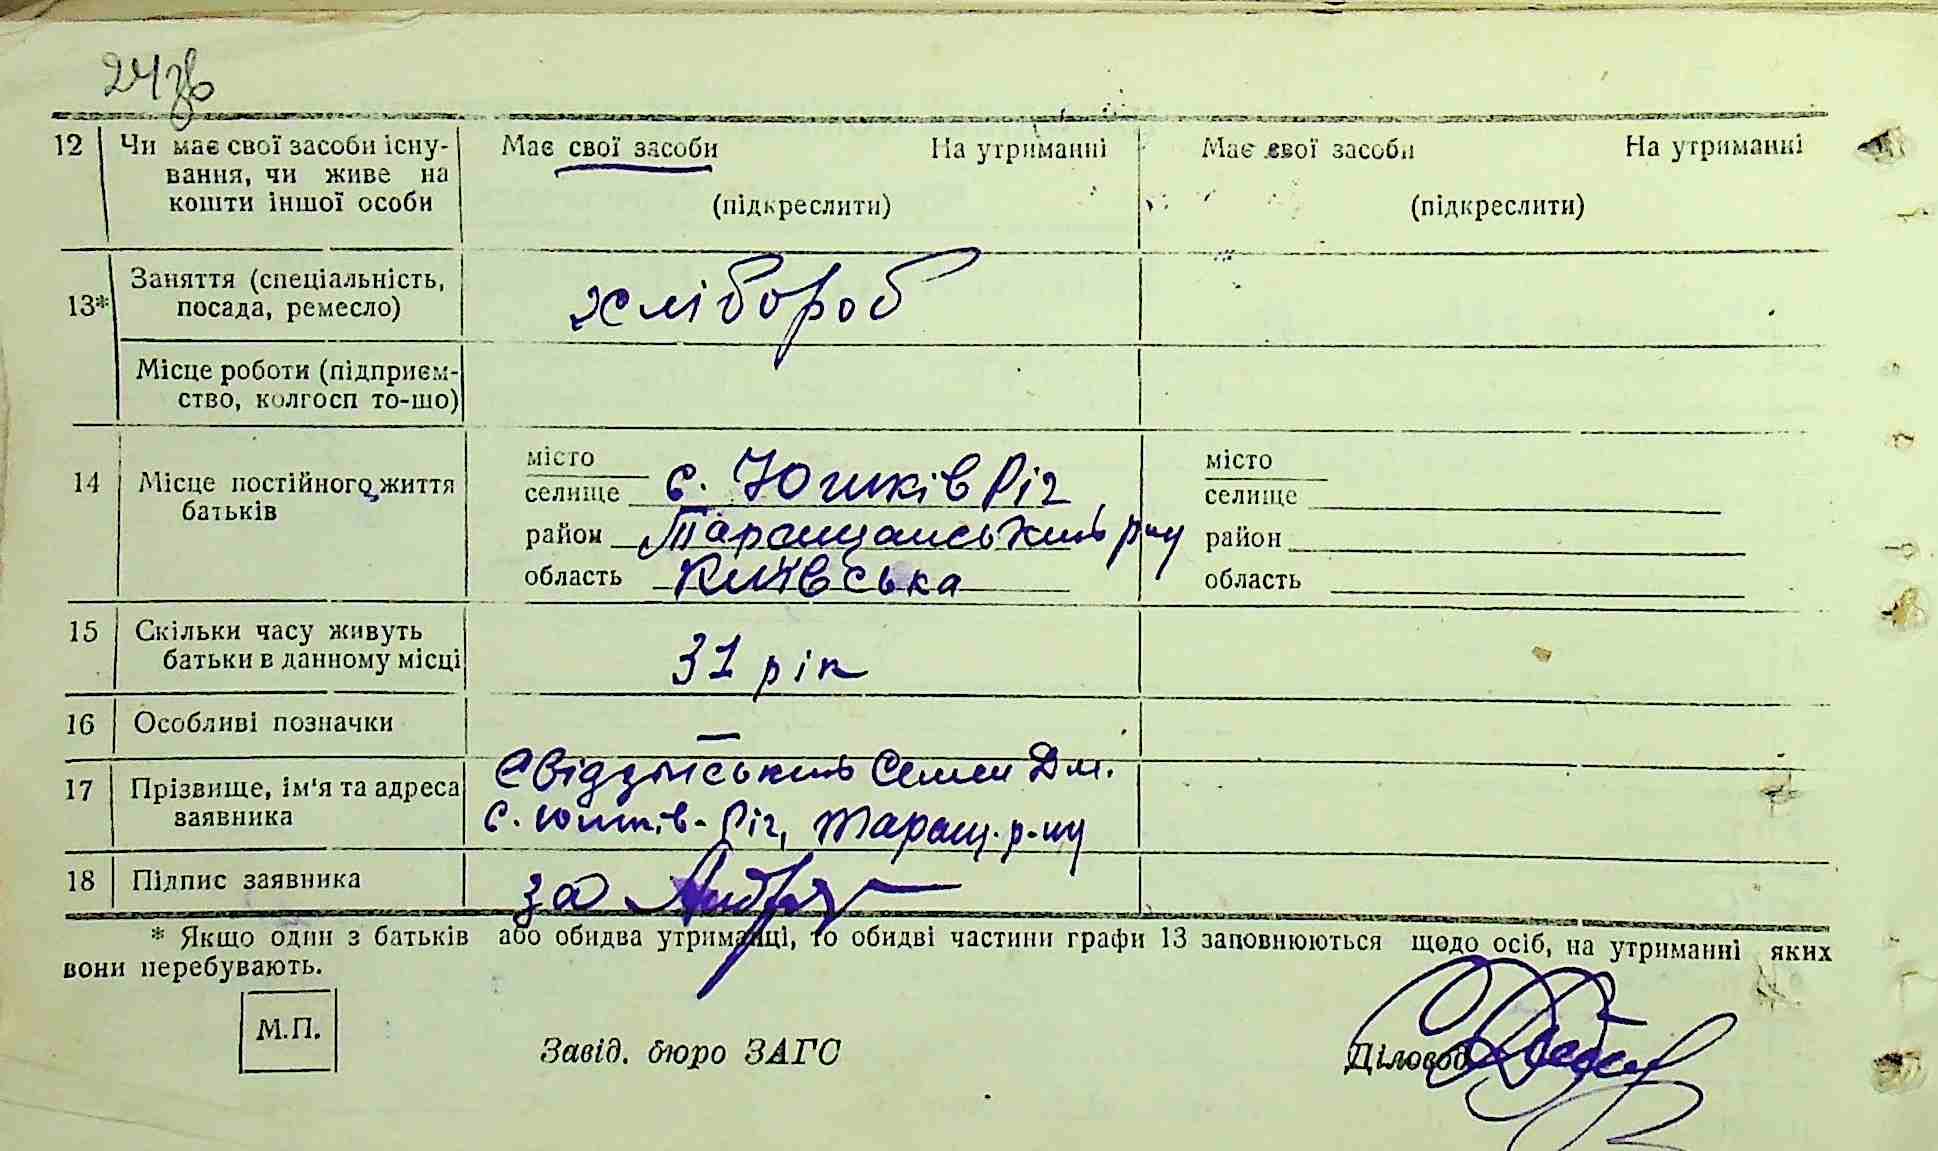 24зв
12 Чи має свої засоби існу- Має свої засоби На утриманні Має свої засоби На утриманні
вання, чи живе на
кошти іншої особи (підкреслити) (підкреслити)
Заняття (спеціальність,
13* посада, ремесло) хлібороб
Місце роботи (підприєм-
ство, колгосп то-що)
місто місто
14 Місце постійного життя селище с. Юшків Ріг селище
батьків
район Таращанський р-ну район
область Київська область
15 Скільки часу живуть
батьки в данному місці 31 рік
16 Особливі позначки —
Свідзінський Семен Дм.
17 Прізвище, ім'я та адреса
заявника с. Юшків-Ріг, Таращ. р-ну
18 Підпис заявника за
* Якщо один з батьків або обидва утриманці, то обидві частини графи 13 заповнюються щодо осіб, на утриманні яких
вони перебувають.
М.П.
Завід. бюро ЗАГС Діловод